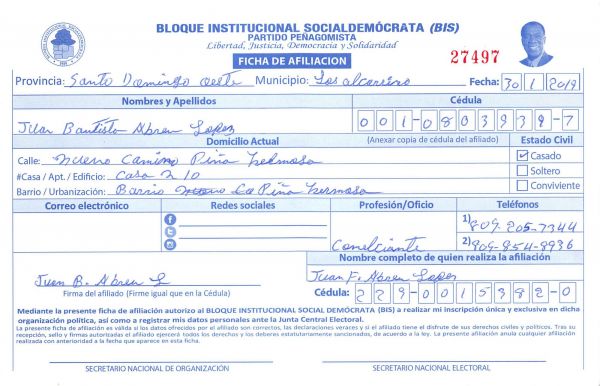 BLOQUE INSTITUCIONAL SOCIALDEMÓCRATA (BIS)
PARTIDO PEÑAGOMISTA
Libertad, Justicia, Democracia y Solidaridad
FICHA DE AFILIACION
27497
Provincia: Santo Domingo oeste Municipio: Los alcarrizo Fecha: 30 1 2019
Nombres y Apellidos Cédula
Juan Bautista Abreu Lopez 001-0803939-7
Domicilio Actual (Anexar copia de cédula del afiliado) Estado Civil
Calle: Nueno Camino Piña hermosa Casado
#Casa / Apt. / Edificio: Casa N 10 Soltero
Barrio / Urbanización: Barrio La Piña hermosa Conviviente
Correo electrónico Redes sociales Profesión/Oficio Teléfonos
1) 809-205-7344
Comelciante 2) 809-854-8936
Nombre completo de quien realiza la afiliación
Juan B. Abreu L Juan F. Abreu Lopez
Firma del afiliado (Firme igual que en la Cédula) Cédula: 229-0015382-0
Mediante la presente ficha de afiliación autorizo al BLOQUE INSTITUCIONAL SOCIAL DEMÓCRATA (BIS) a realizar mi inscripción única y exclusiva en dicha
organización política, así como a registrar mis datos personales ante la Junta Central Electoral.
La presente ficha de afiliación es válida si los datos ofrecidos por el afiliado son correctos, las declaraciones veraces y si el afiliado tiene el disfrute de sus derechos civiles y políticos. Tras su
recepción, sello y firmas autorizadas el afiliado ejercerá todos los derechos y los deberes estatutariamente sancionados, de acuerdo a la ley. La presente afiliación anula cualquier afiliación
realizada con anterioridad a la fecha que aparece en esta ficha.
SECRETARIO NACIONAL DE ORGANIZACIÓN SECRETARIO NACIONAL ELECTORAL